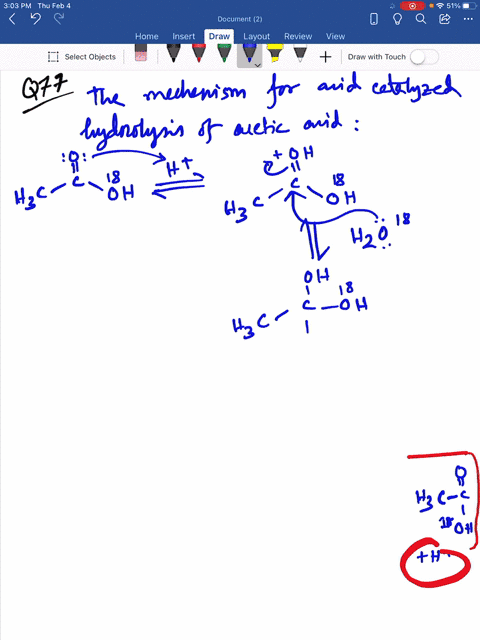 3:03 PM Thu Feb 4
51%
Document (2)
Home Insert Draw Layout Review View
Select Objects
Draw with Touch
Q77 The mechanism for acid catalyzed
hydrolysis of acetic acid :
:O:
H+
H3C C 18
OH
+ OH
C 18
H3C OH
H2O 18
OH
18
C OH
H3C
O
H3C-C
18 OH
+H+